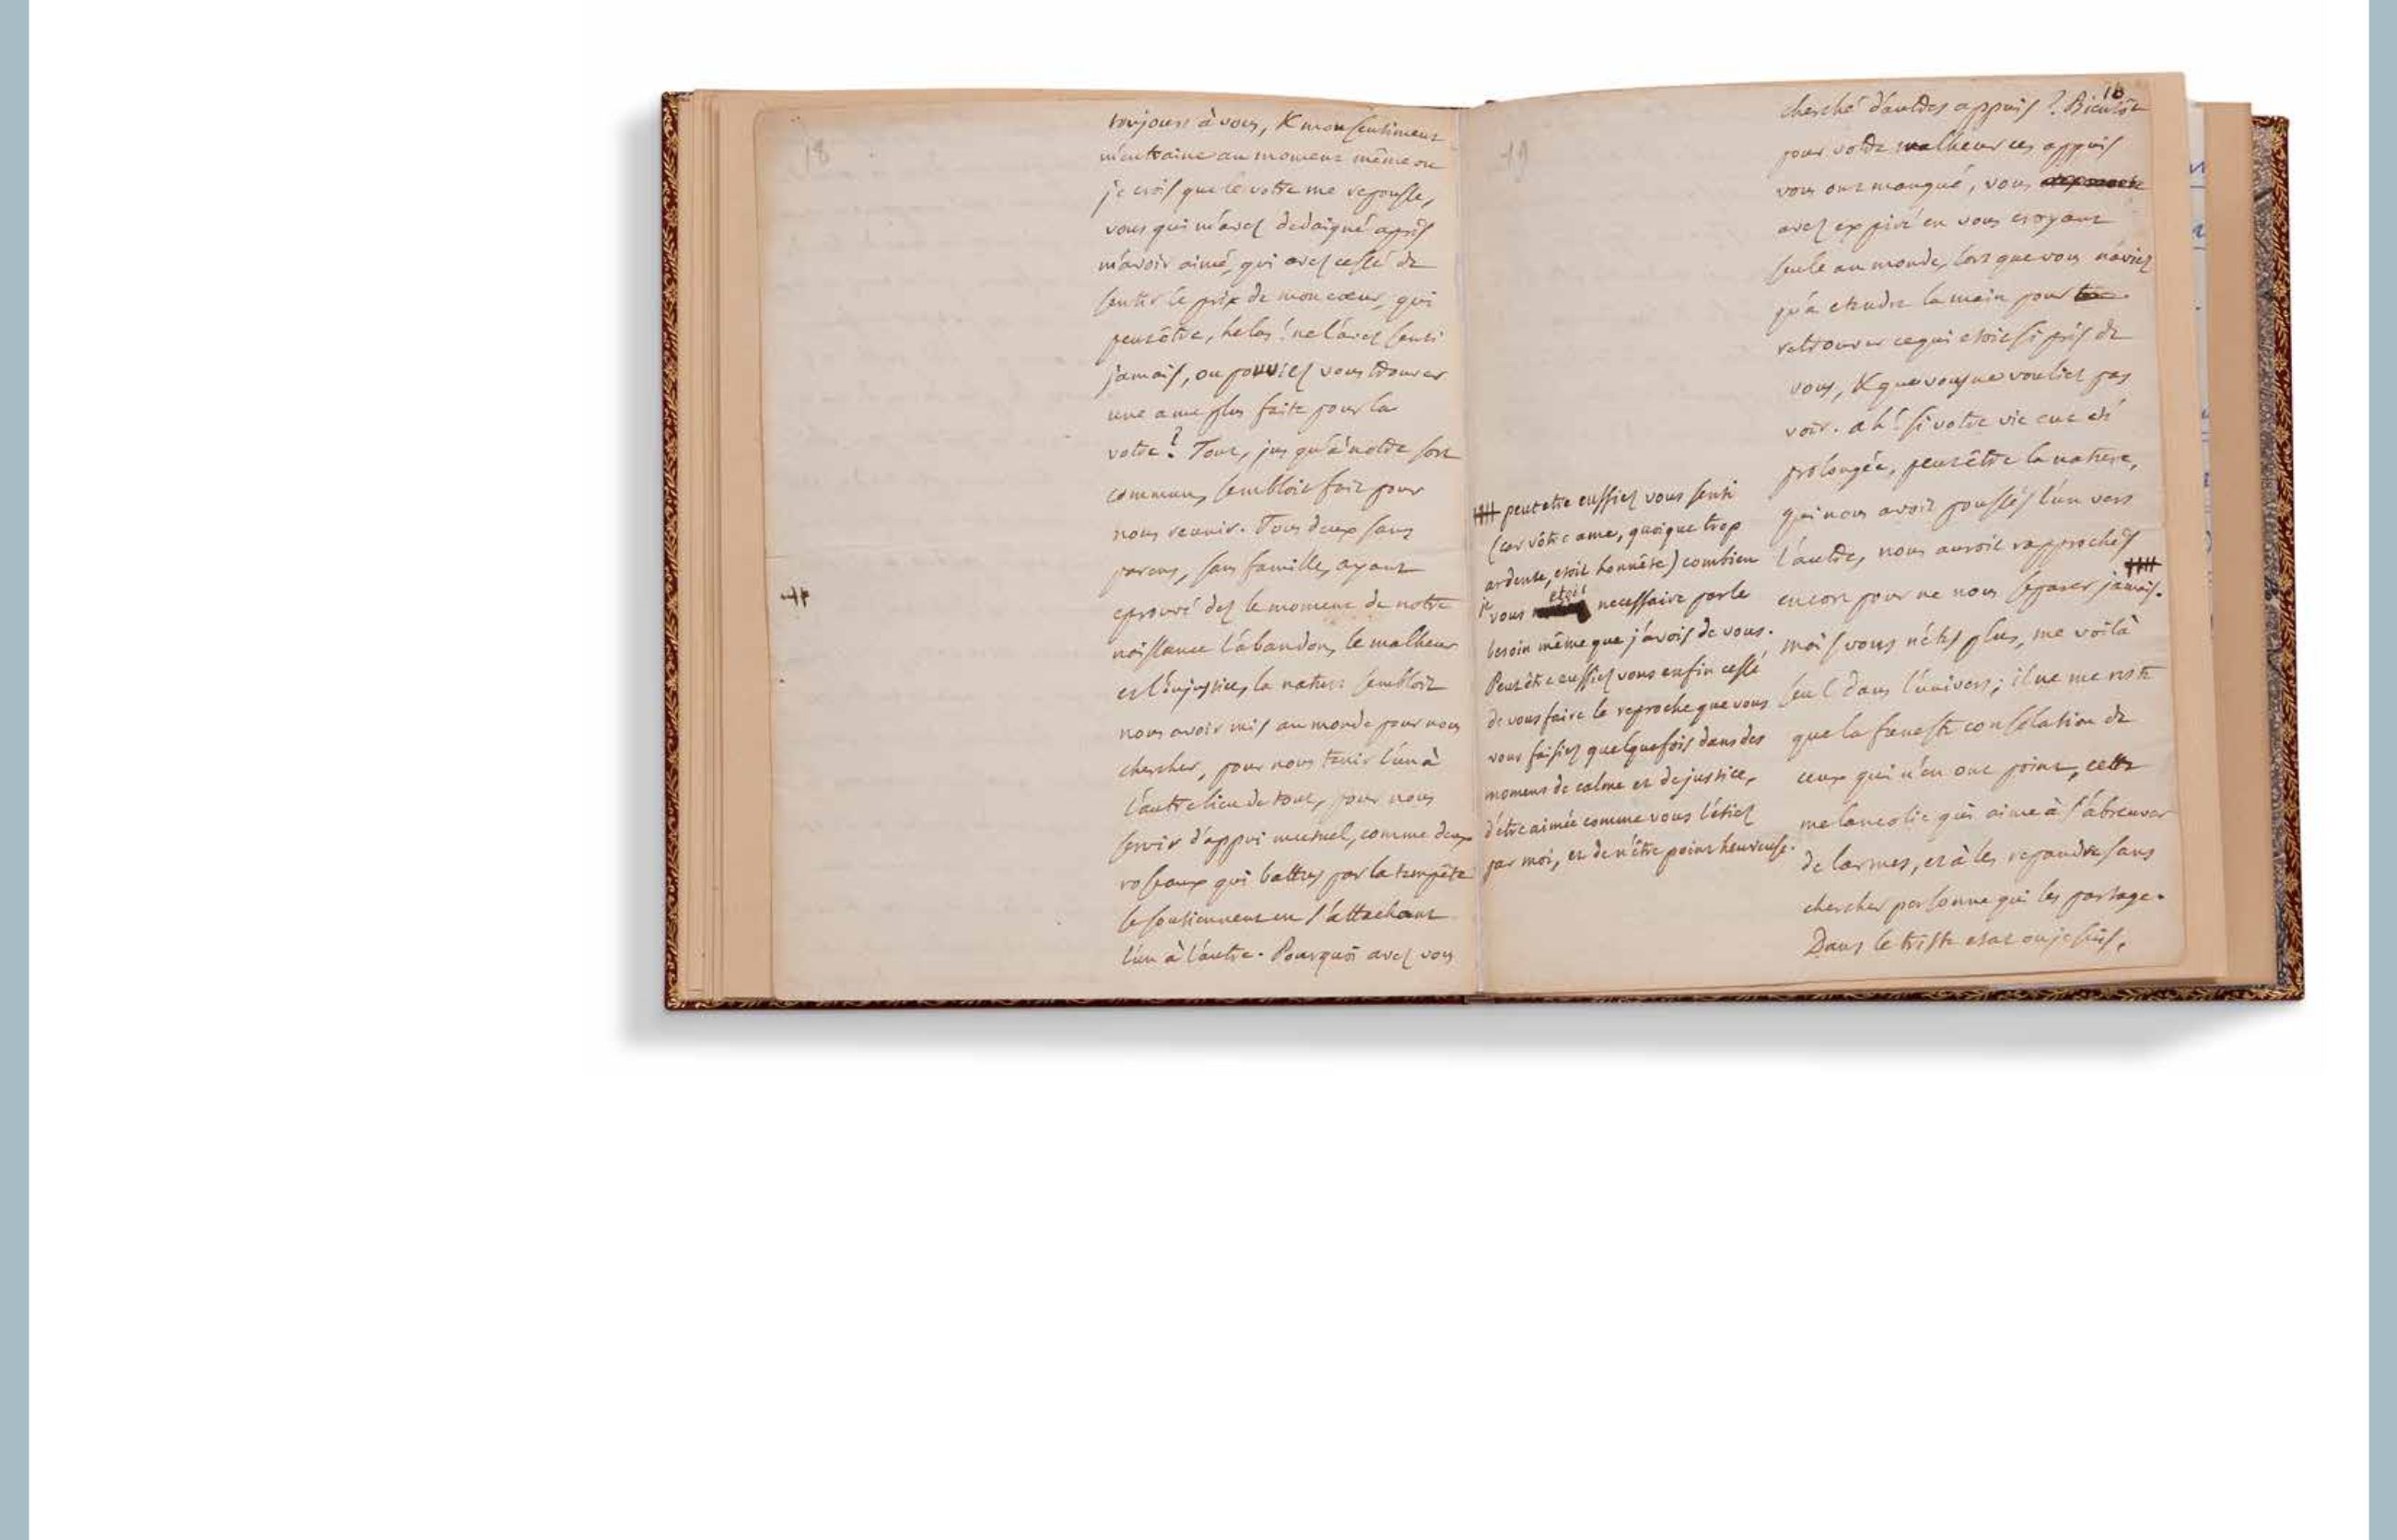 18
toujours à vous, & mon sentiment
m'entraine au moment même ou
je crois que le votre me repousse,
vous qui m'avez dedaigné après
m'avoir aimé, qui avez cessé de
sentir le prix de mon cœur, qui
peutêtre, helas! ne l'avez senti
jamais, ou pouviez vous trouver
une ame plus faite pour la
votre? Tout, jusqu'à notre sort
commun, sembloit fait pour
nous reunir. Tous deux sans
parens, sans famille, ayant
eprouvé dez le moment de notre
naissance l'abandon, le malheur
et l'injustice, la nature sembloit
nous avoir mis au monde pour nous
chercher, pour nous tenir l'un à
l'autre lieu de tout, pour nous
servir d'appui mutuel, comme deux
roseaux qui battus par la tempête
se soutiennent en s'attachant
l'un à l'autre. Pourquoi avez vous
19
10
cherché d'autres appuis? Bientôt
pour votre malheur ces appuis
vous ont manqué, vous
avez expiré en vous croyant
seule au monde, lors que vous n'aviez
qu'a etendre la main pour
retrouver ce qui etoit si près de
vous, & que vous ne vouliez pas
voir. ah! si votre vie eut eté
prolongée, peutêtre la nature,
qui nous avoit poussés l'un vers
l'autre, nous auroit rapprochés
encore pour ne nous separer jamais.
mais vous n'étes plus, me voilà
seul dans l'univers; il ne me reste
que la funeste consolation de
ceux qui n'en ont point, cette
melancolie qui aime à s'abreuver
de larmes, et à les repandre sans
chercher personne qui les partage.
Dans le triste etat ou je suis,
peutetre eussiez vous senti
(car vôtre ame, quoique trop
ardente, etoit honnête) combien
je vous etois necessaire par le
besoin même que j'avois de vous.
Peutêtre eussiez vous enfin cessé
de vous faire le reproche que vous
vous faisiez quelquefois dans des
momens de calme et de justice,
d'être aimée comme vous l'étiez
par moi, et de n'être point heureuse.